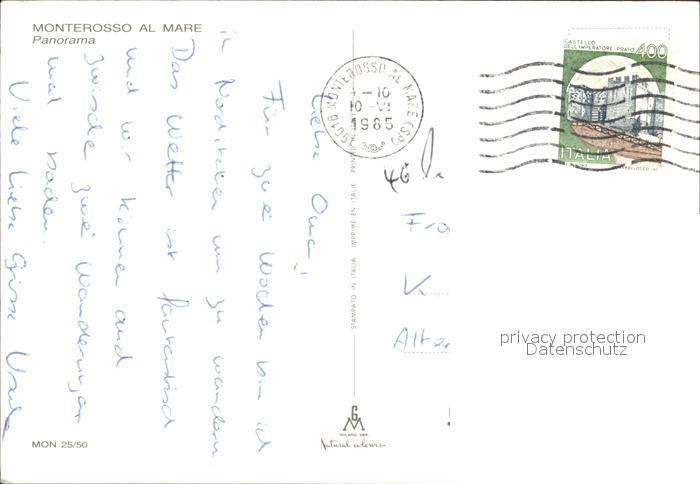 MONTEROSSO AL MARE
Panorama
Liebe Oma!
Für zwei Wochen bin ich
in Norditalien um zu wandern.
Das Wetter ist fantastisch
und wir können auch
zwischen zwei Wanderungen
mal baden.
Viele liebe Grüsse
MON 25/50
STAMPATO IN ITALIA IMPRIMÉ EN ITALIE
19016 MONTEROSSO AL MARE (SP)
10 -VI
1985
CASTELLO
DELL'IMPERATORE-PRATO 400
ITALIA
46
Alte
privacy protection
Datenschutz
GM
Natural colours